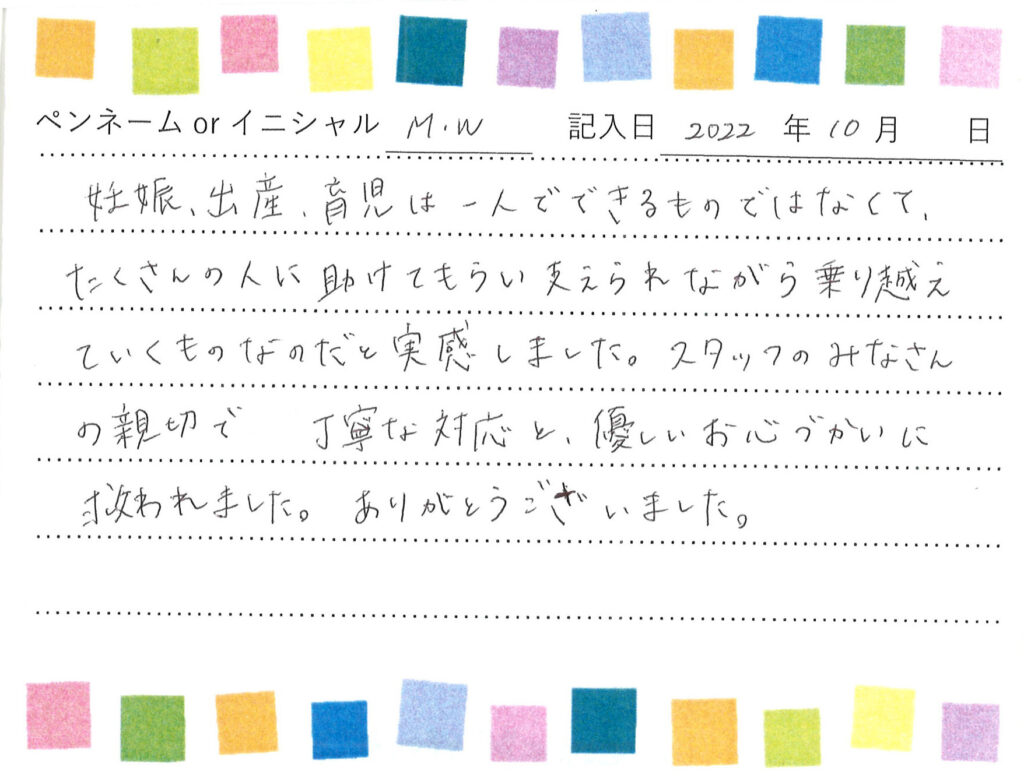 ペンネーム or イニシャル M.W 記入日 2022 年 10 月 日
妊娠、出産、育児は一人でできるものではなくて、
たくさんの人に助けてもらい支えられながら乗り越え
ていくものなのだと実感しました。スタッフのみなさん
の親切で 丁寧な対応と、優しいお心づかいに
救われました。ありがとうございました。